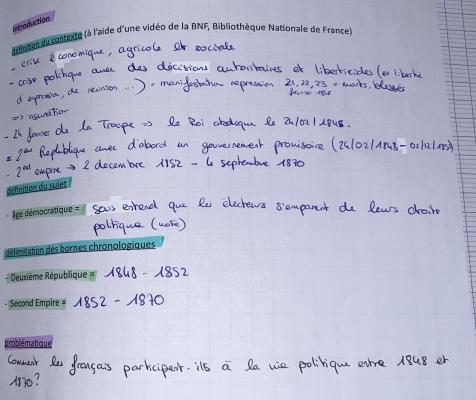 introduction
définition du contexte (à l'aide d'une vidéo de la BNF, Bibliothèque Nationale de France)
- crise économique, agricole et sociale
- crise politique avec des décisions autoritaires et liberticides (ex liberté
d'expression, de réunion ...) = manifestation repression 21, 22, 23 = morts, blessés
février 1848
=> insurrection
- 24 fevrier de la Troupe => le Roi abdique le 24/02/1848.
= 2eme Republique avec d'abord un gouvernement provisoire (24/02/1848 - 02/12/1852)
- 2nd empire → 2 decembre 1852 - 4 septembre 1870
définition du sujet
- âge démocratique = sous entend que les électeurs s'emparent de leurs droits
politique (vote)
délimitation des bornes chronologiques
- Deuxième République = 1848 - 1852
- Second Empire = 1852 - 1870
problématique
Comment les français participent-ils à la vie politique entre 1848 et
1870?